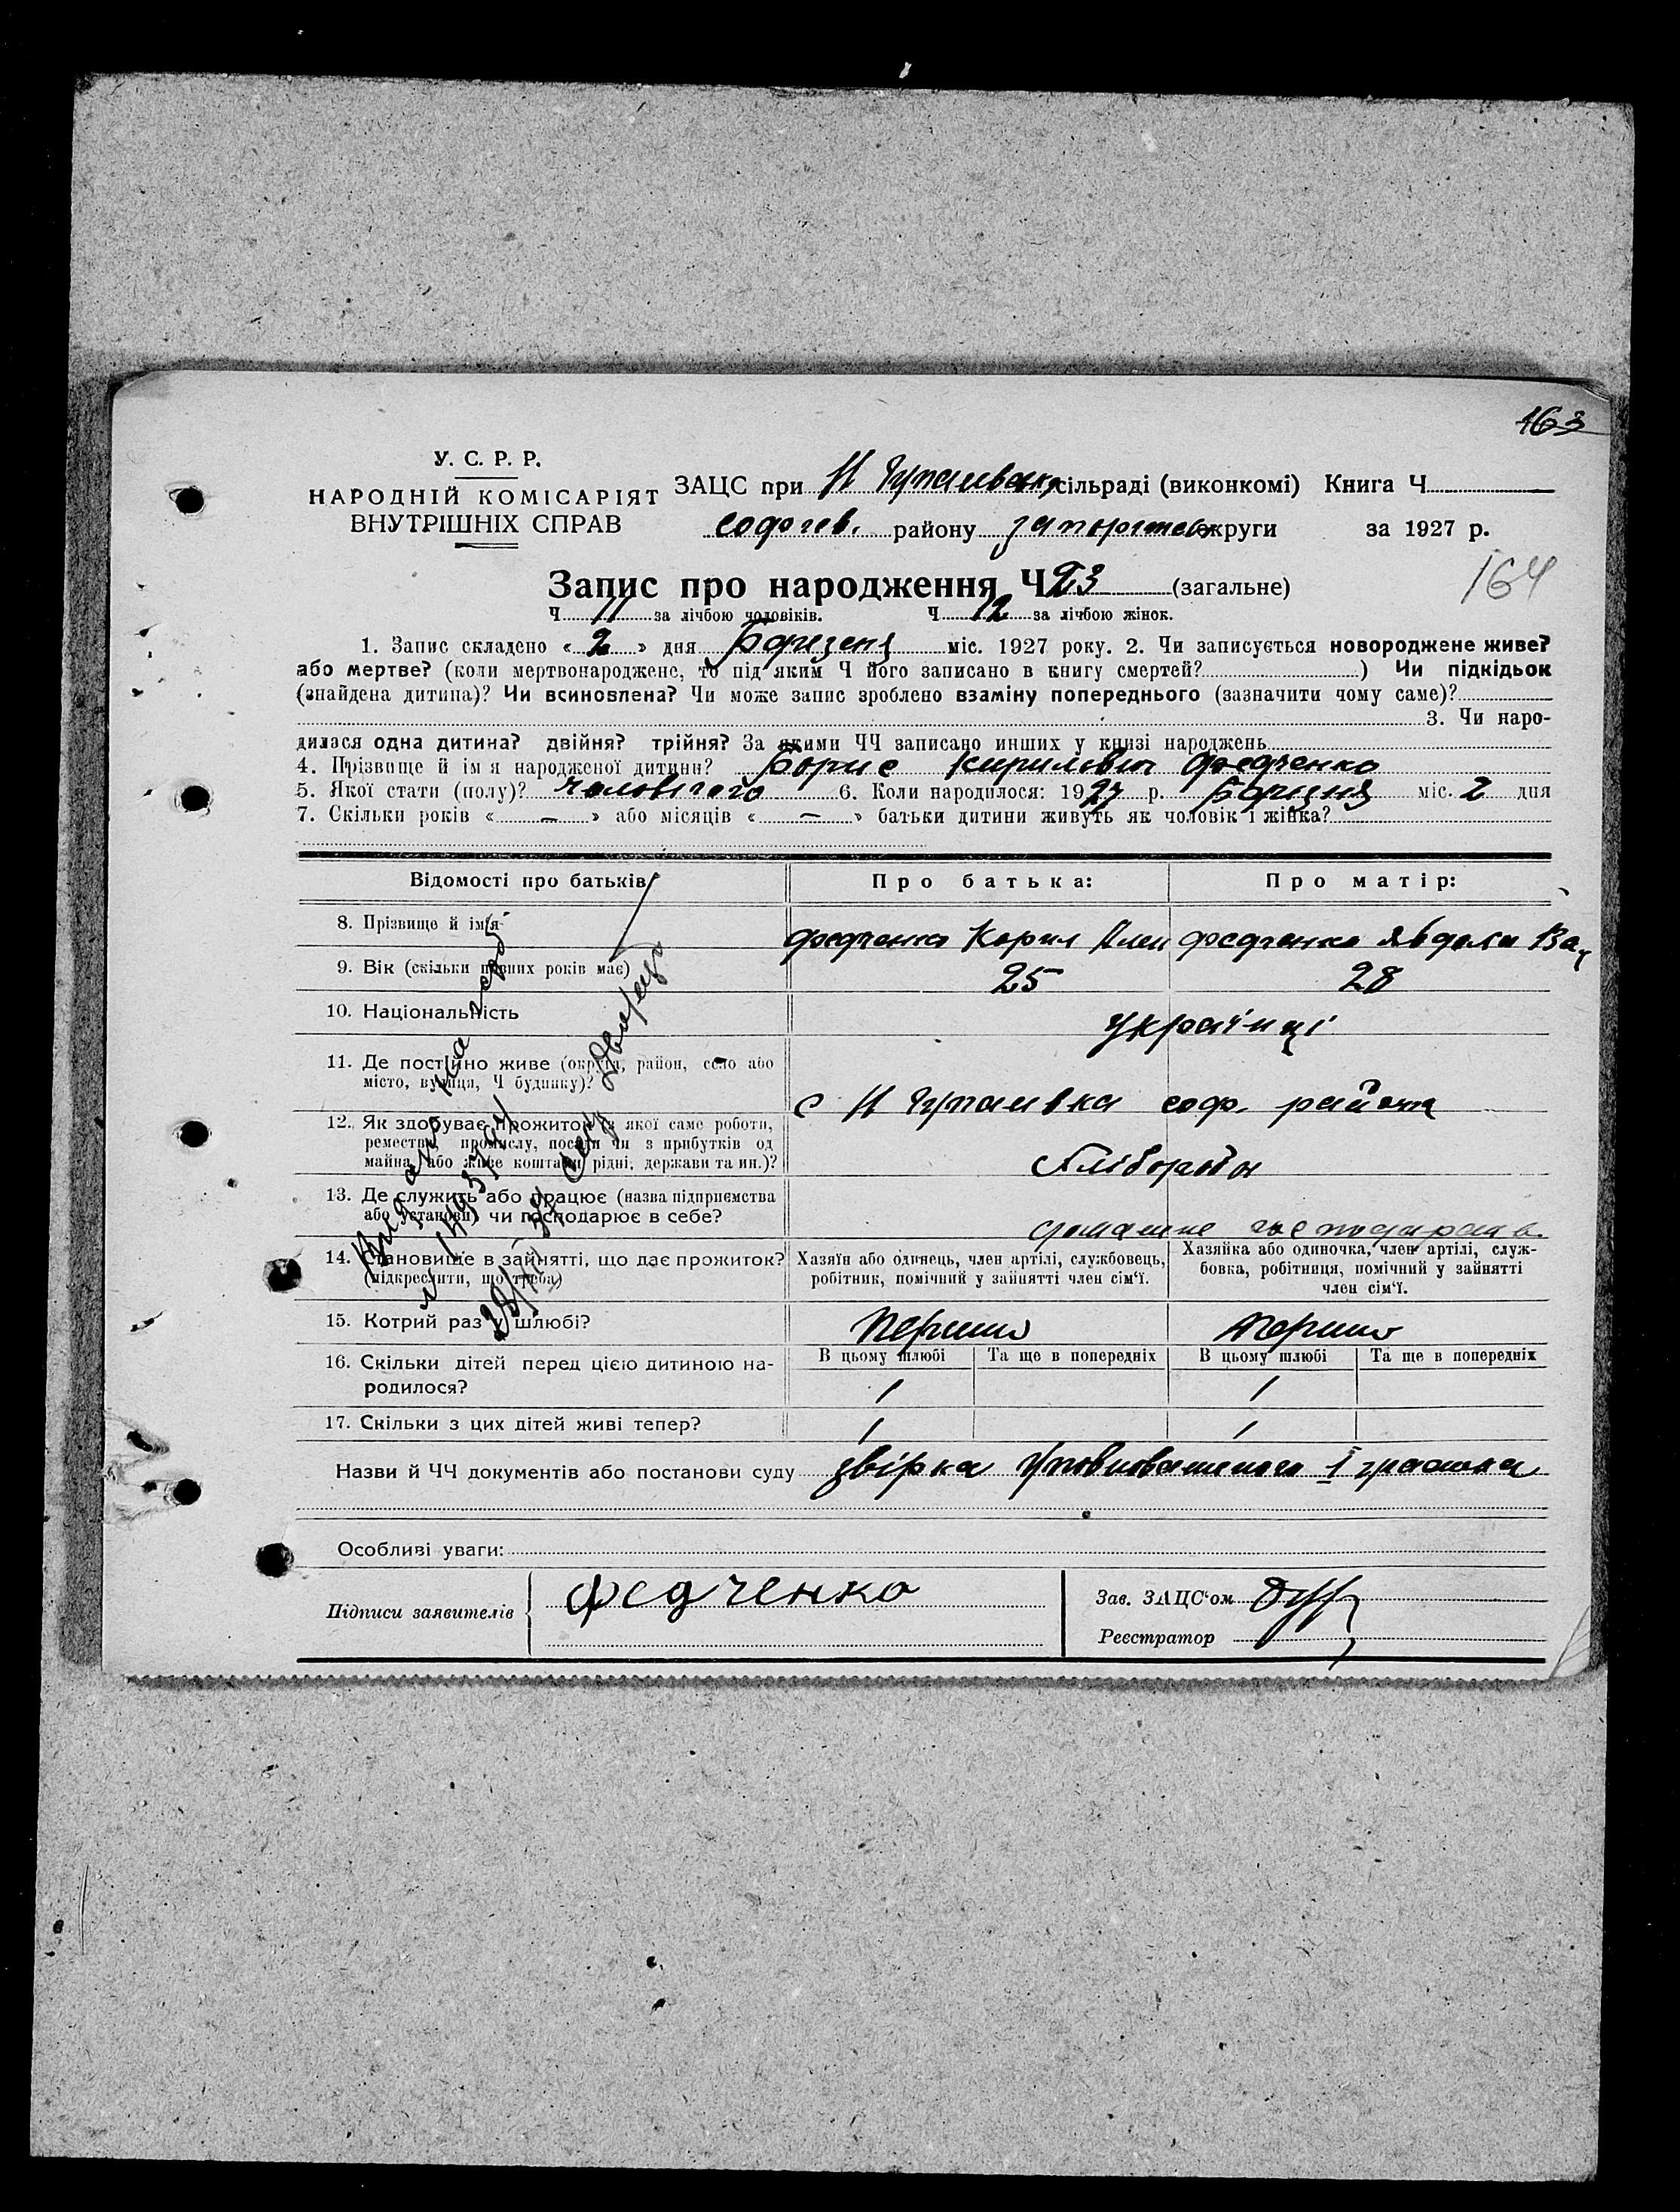 163
У. С. Р. Р.
НАРОДНІЙ КОМІСАРІЯТ
ВНУТРІШНІХ СПРАВ
ЗАЦС при Н Гупалівак сільраді (виконкомі) Книга Ч
софіев. району запорожськ округи за 1927 р.
164
Запис про народження Ч 23 (загальне)
Ч 11 за лічбою чоловіків. Ч 12 за лічбою жінок.
1. Запис складено « 2 » дня міс. 1927 року. 2. Чи записується новороджене живе?
або мертве? (коли мертвонароджене, то під яким Ч його записано в книгу смертей? ) Чи підкідьок
(знайдена дитина)? Чи всиновлена? Чи може запис зроблено взаміну попереднього (зазначити чому саме)?
3. Чи наро-
дилася одна дитина? двійня? трійня? За якими ЧЧ записано инших у книзі народжень
4. Прізвище й ім я народженої дитини? Борис Кирилович Федченко
5. Якої стати (полу)? чоловічого 6. Коли народилося: 1927 р. міс. 2 дня
7. Скільки років « – » або місяців « – » батьки дитини живуть як чоловік і жінка?
Відомості про батьків Про батька: Про матір:
8. Прізвище й ім'я Федченко Кирил Алек Федченко Явдоха Ва
9. Вік (скільки повних років має) 25 28
10. Національність Українці
11. Де постійно живе (округа, район, село або
місто, вулиця, Ч будинку)? с Н Гупалівка соф. району
12. Як здобуває прожиток (з якої саме роботи,
ремества, промислу, посади чи з прибутків од
майна, або живе коштами рідні, держави та ин.)? Хлібороби
13. Де служить або працює (назва підприємства
або установи) чи господарює в себе? домашне господарств.
14. Становище в зайнятті, що дає прожиток?
(підкреслити, що треба)
Хазяїн або одинець, член артілі, службовець,
робітник, помічний у зайнятті член сім'ї.
Хазяйка або одиночка, член артілі, служ-
бовка, робітниця, помічний у зайнятті
член сім'ї.
15. Котрий раз у шлюбі? Першим Першим
В цьому шлюбі Та ще в попередніх В цьому шлюбі Та ще в попередніх
16. Скільки дітей перед цією дитиною на-
родилося? 1 1
17. Скільки з цих дітей живі тепер? 1 1
Назви й ЧЧ документів або постанови суду звірка Уповноваженого
Особливі уваги:
Підписи заявителів Федченко
Зав. ЗАЦС'ом
Реєстратор